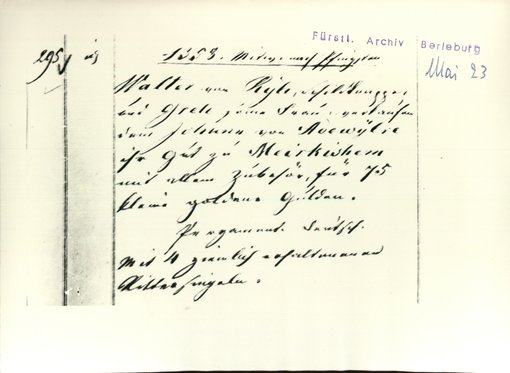 Fürstl. Archiv Berleburg
Mai 23
295
1353. Mittw. nach Pfingsten
Walter von
und Grete seine Frau, verkaufen
dem Johann von
ihr Gut zu Meirkishem
mit allem Zubehör, für 75
kleine goldene Gulden.
Pergament. Deutsch.
Mit 4 ziemlich erhaltenen
Rittersiegeln.